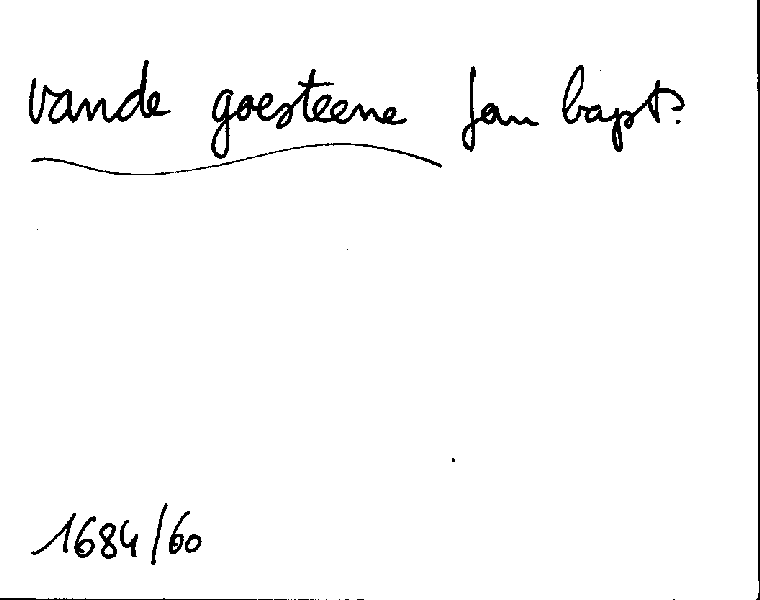 vande goesteene Jan bapt:
1684/60